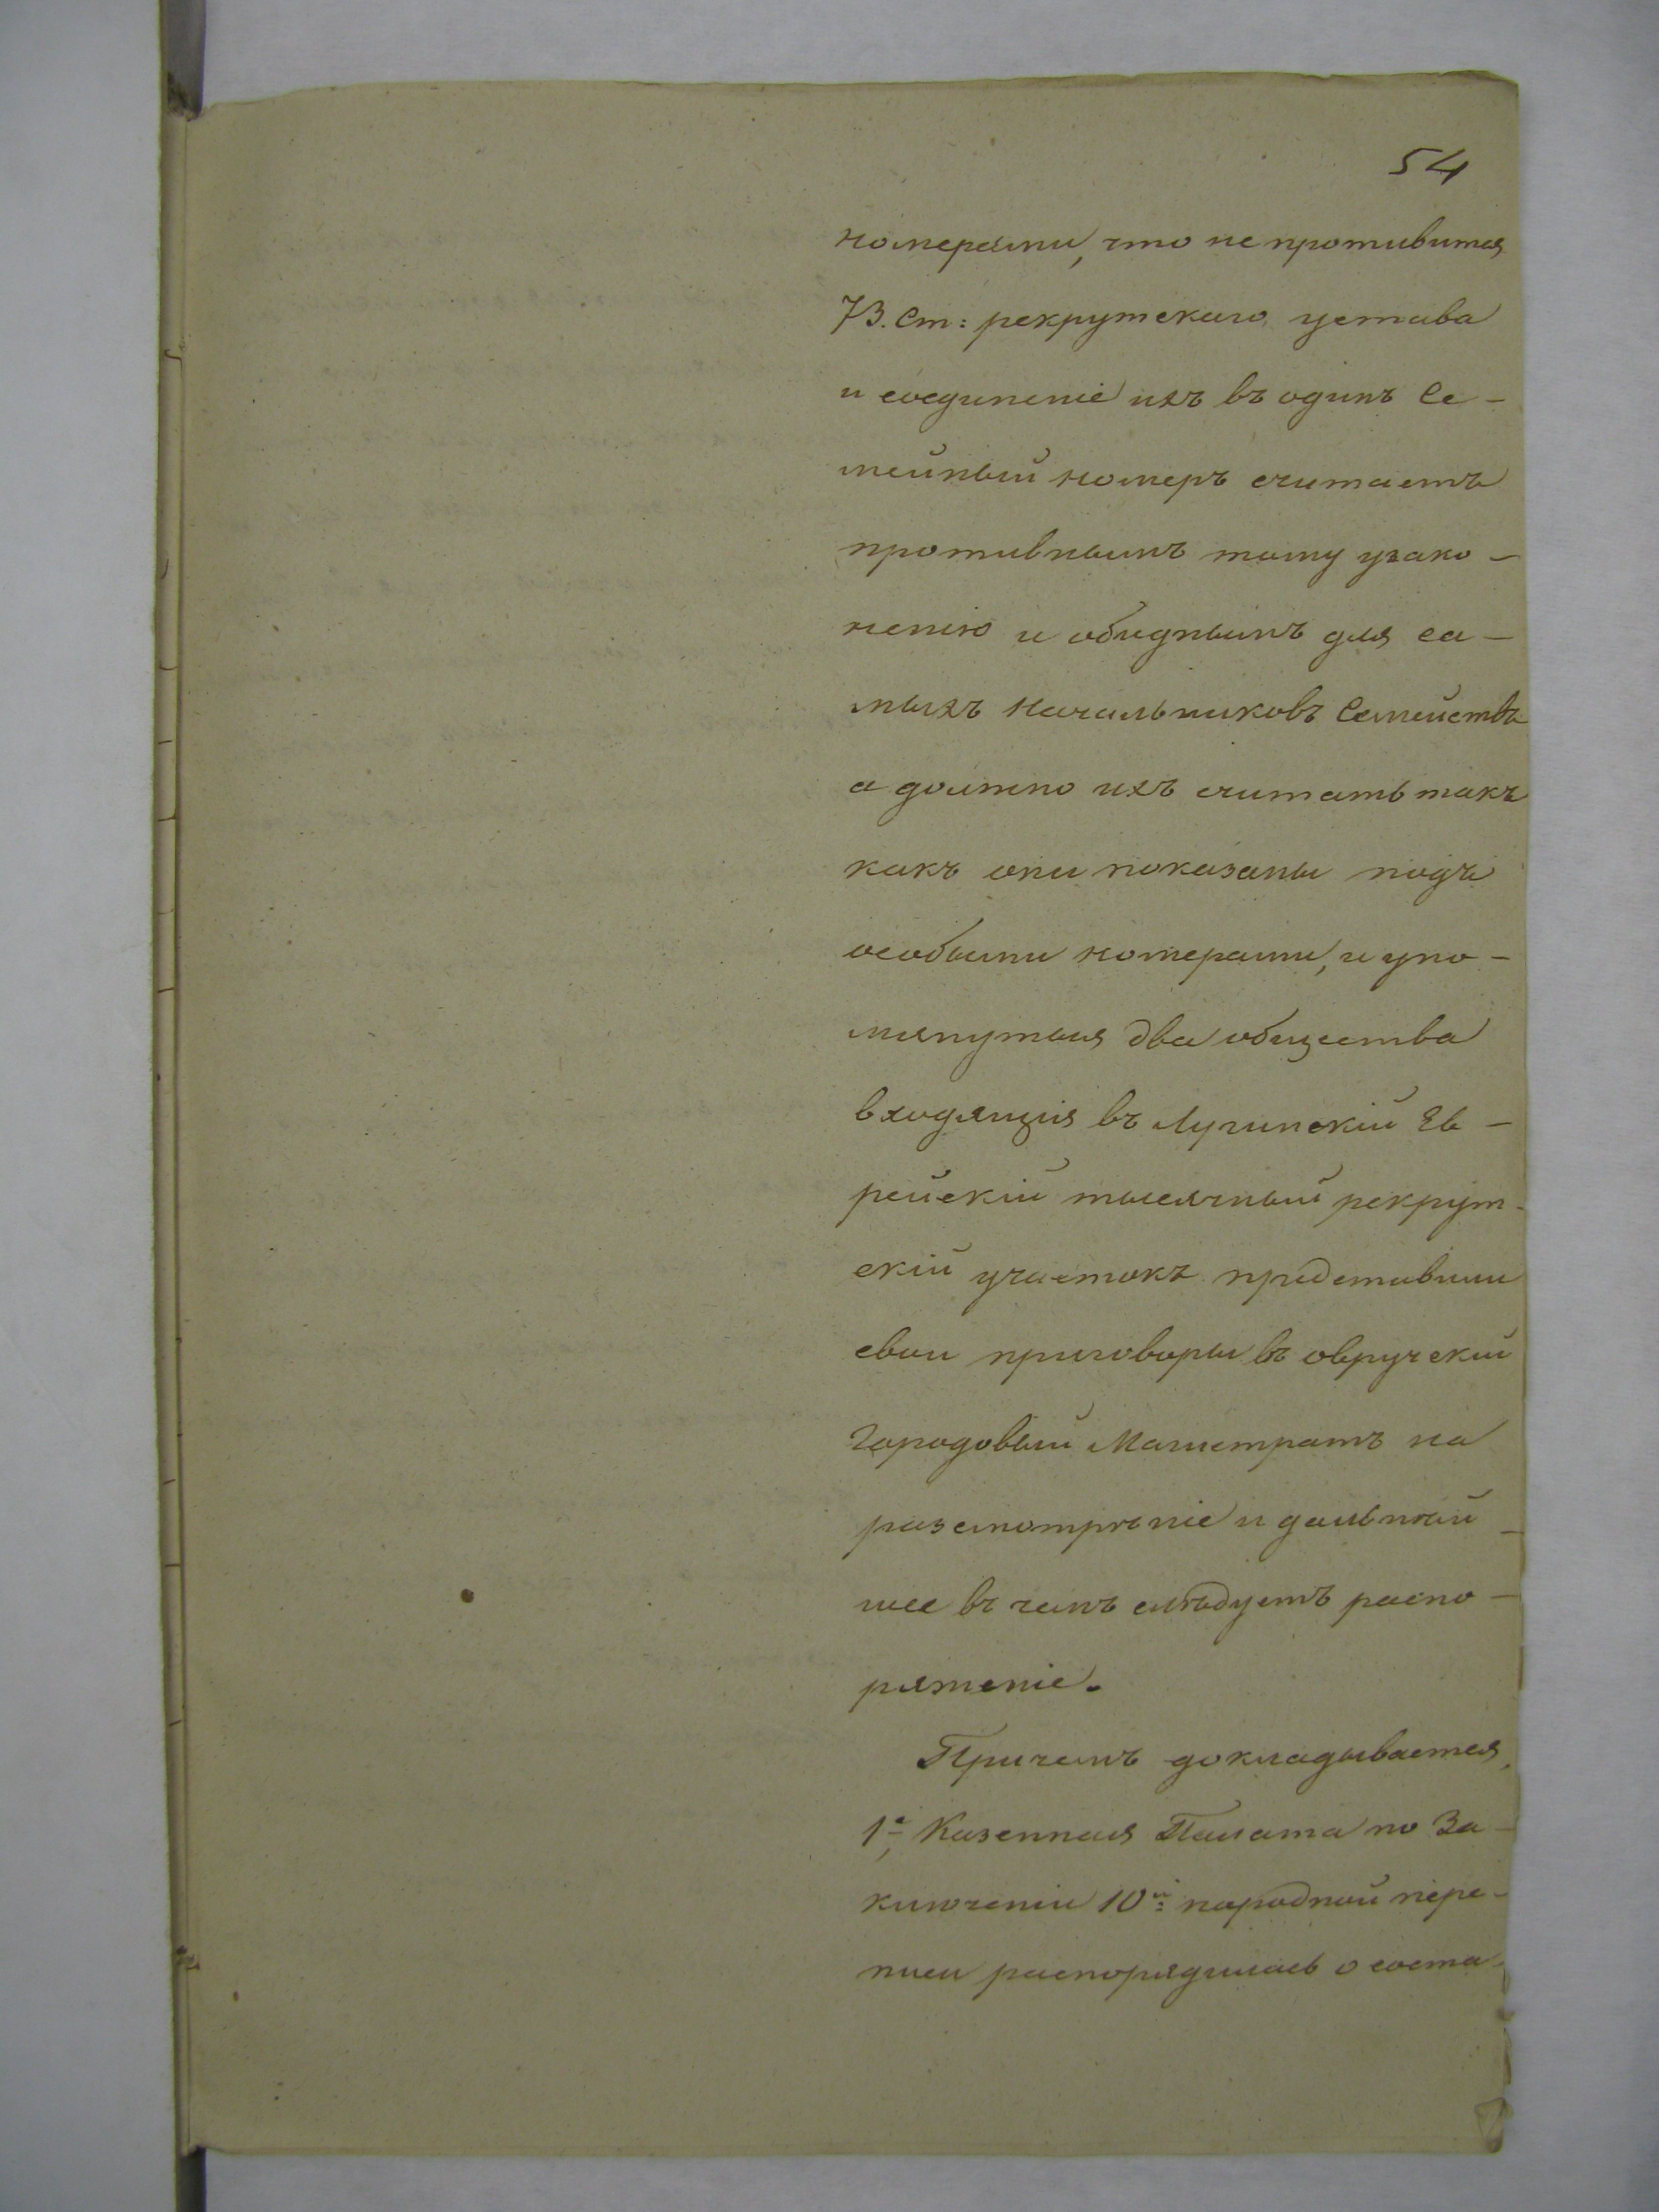 54
номерами, что не противится
73. Ст: рекрутскаго устава
и соединеніе ихъ въ одинъ Се-
мейный номеръ считаетъ
противнымъ тому узако-
ненію и обиднымъ для са-
мыхъ Начальниковъ Семействъ
а должно ихъ считать такъ
какъ они показаны подъ
особыми номерами, и упо-
мянутыя два общества
входящія въ Лугинскій Ев-
рейскій тысячный рекрут-
скій участокъ представили
свои приговоры въ овручскій
Городовый Магистратъ на
разсмотрѣніе и дальнѣй-
шее въ чемъ слѣдуетъ распо-
ряженіе.
Причемъ докладывается,
1е, Казенная Палата по За-
ключеніи 10й народной пере-
писи распорядилась о соста-